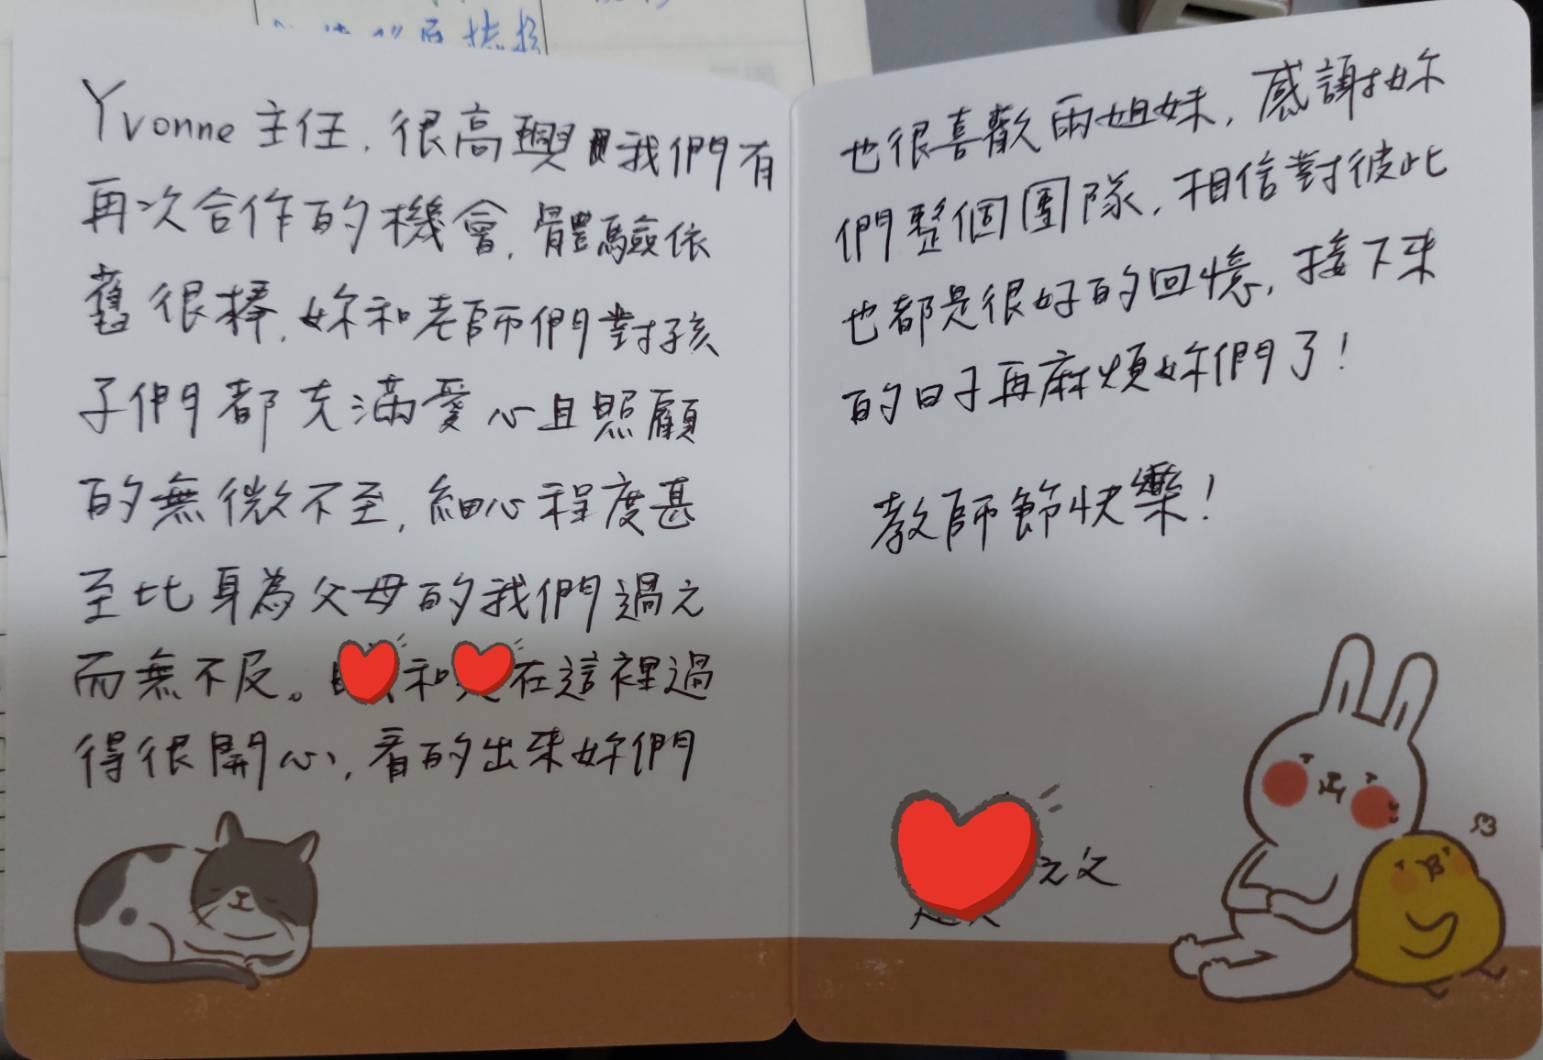 Yvonne 主任,很高興我們有
再次合作的機會,體驗依
舊很棒,妳和老師們對孩
子們都充滿愛心且照顧
的無微不至,細心程度甚
至比身為父母的我們過之
而無不及。和在這裡過
得很開心,看的出來妳們
也很喜歡兩姐妹,感謝妳
們整個團隊,相信對彼此
也都是很好的回憶,接下來
的日子再麻煩妳們了!
教師節快樂!
之父